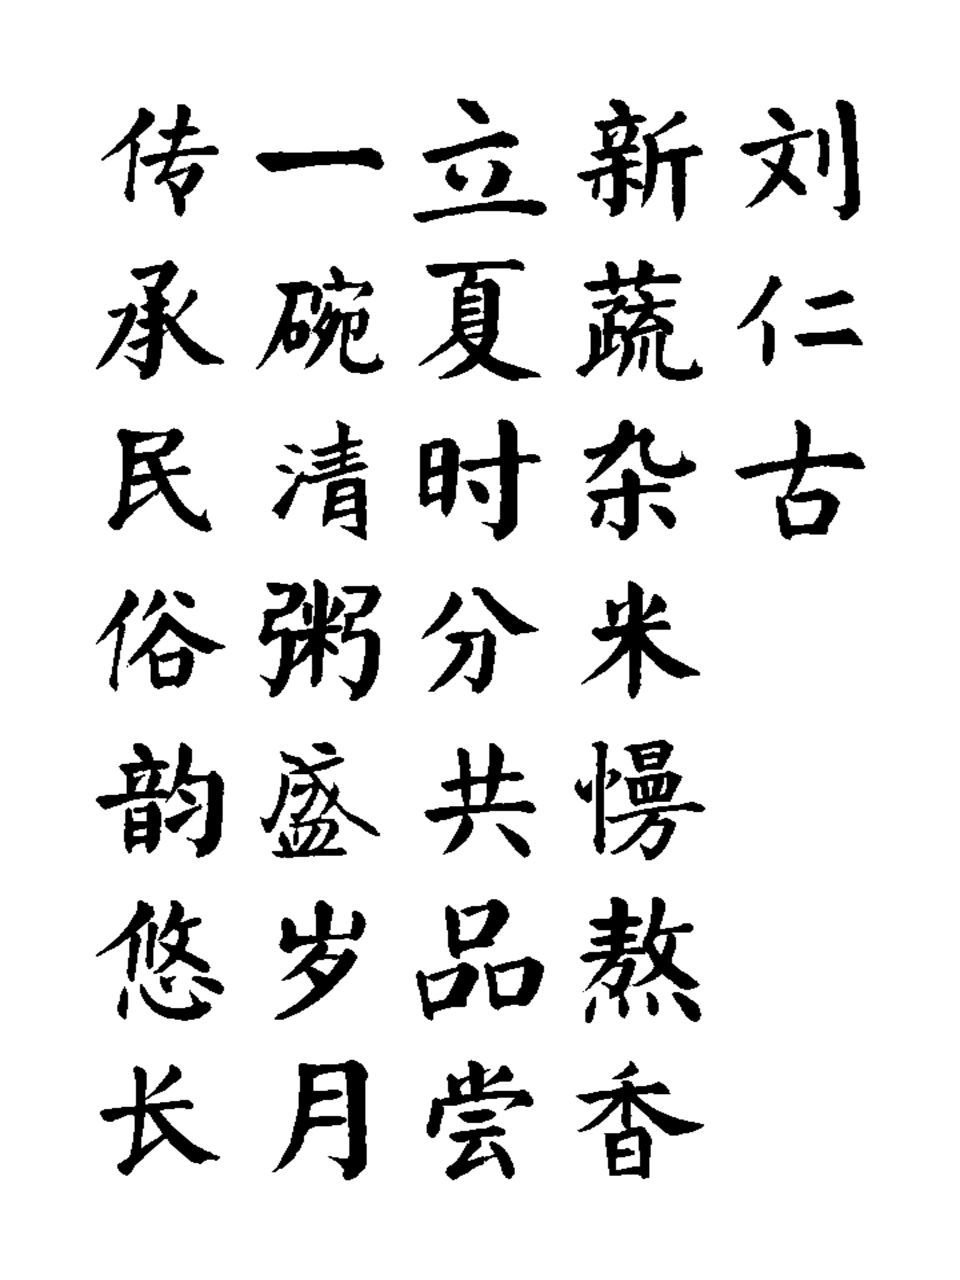 刘仁古
新蔬杂米慢熬香
立夏时分共品尝
一碗清粥盛岁月
传承民俗韵悠长